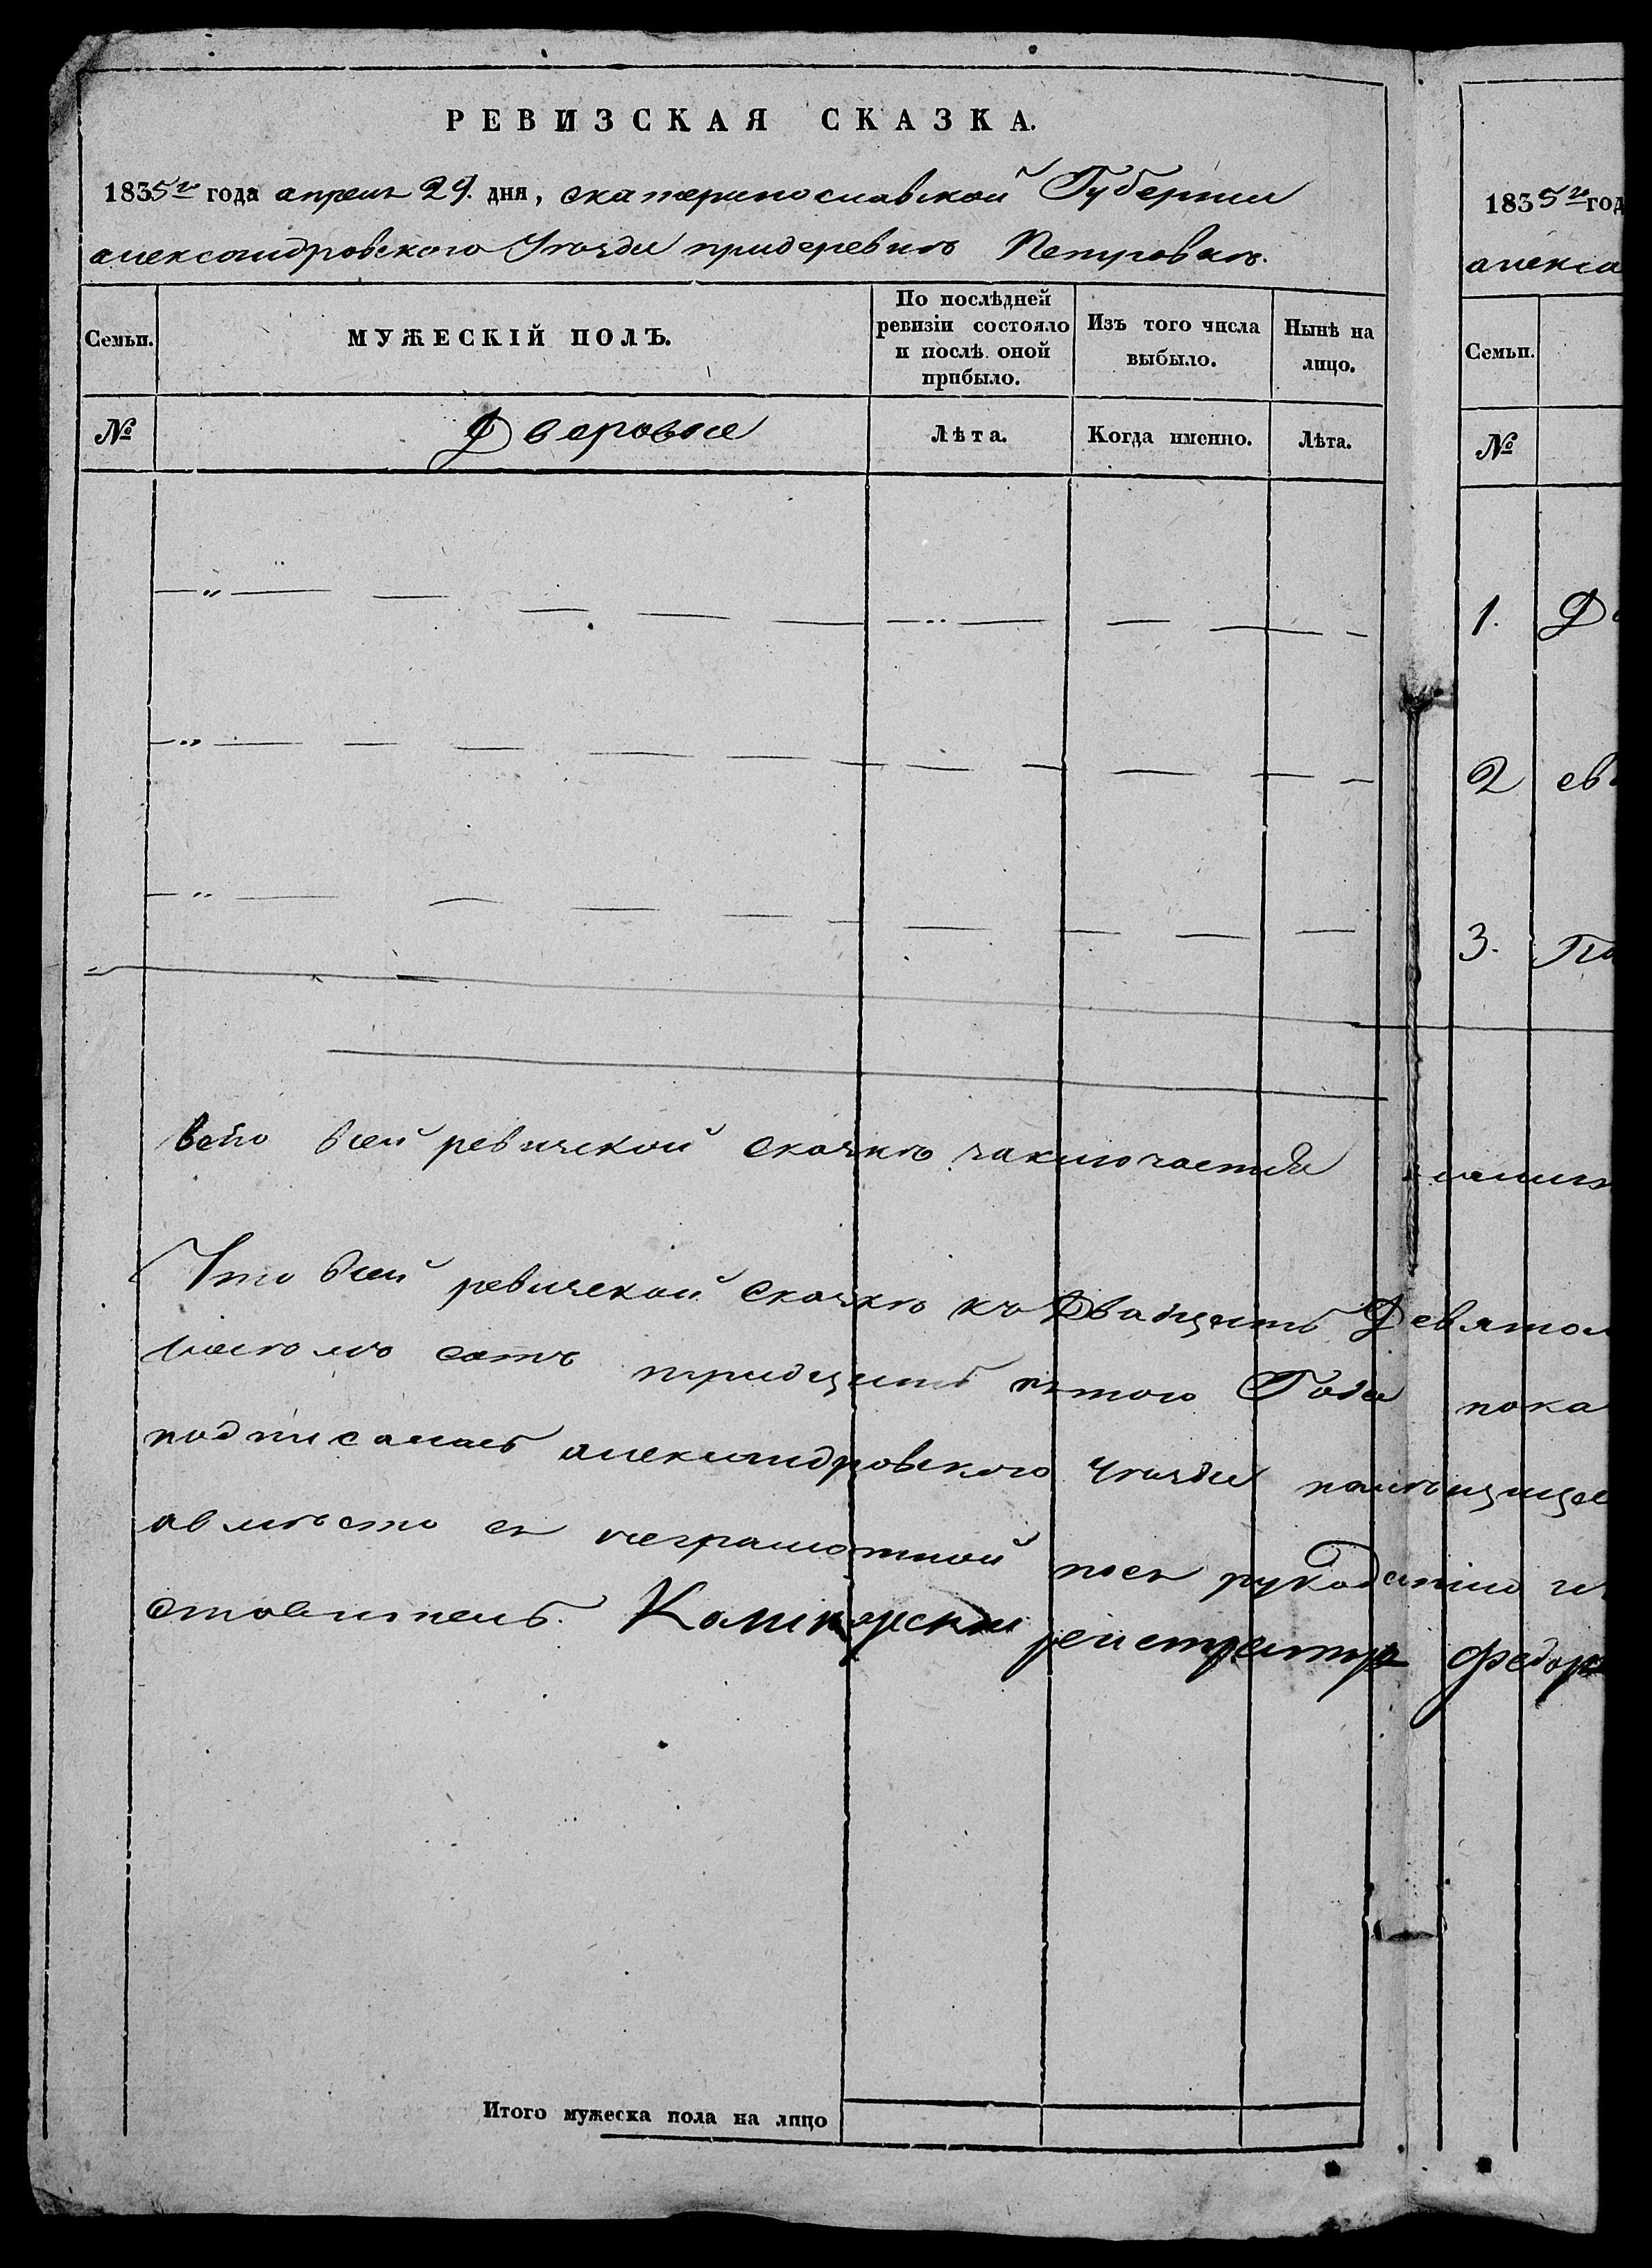 РЕВИЗСКАЯ СКАЗКА.
1835го года апреля 29. дня, екатеринославской Губернии
александровского Уезда придеревне Петровке.
Семьи.
МУЖЕСКІЙ ПОЛЪ.
По послѣдней ревизіи состояло и послѣ оной прибыло.
Изъ того числа выбыло.
Нынѣ на лицо.
№
Дворовые
Лѣта.
Когда именно.
Лѣта.
всего всей ревиской скаске заключается
Что всей ревиской скаске къ двадцать Девятом
сотъ тридцать пятого Года пока
подписалась александровского уезда помѣщице
авместо ея неграмотной поея рукоданию
Колиежский регистратор Федор
Итого мужеска пола на лицо
1835го год
алекса
Семьи.
№
1.
2 ев
3.